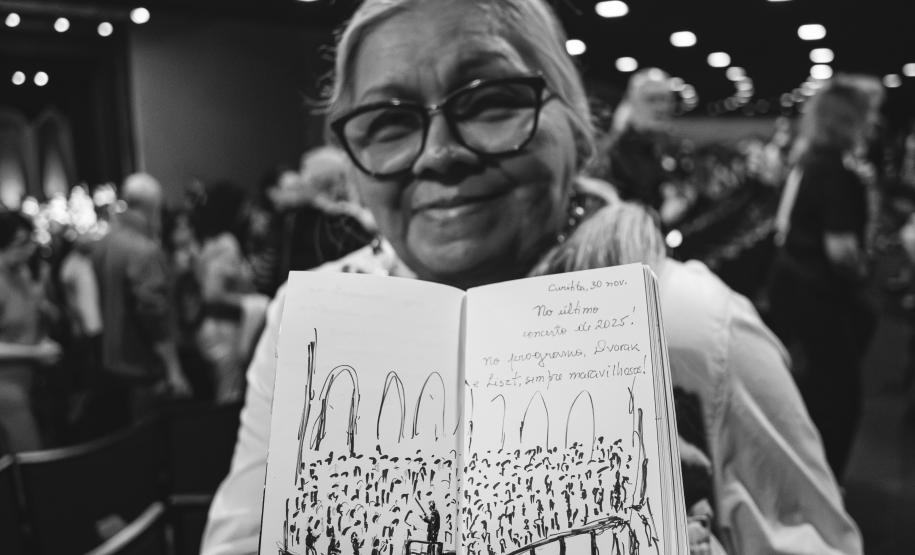 Curitiba, 30 nov.
No último
concerto de 2025!
No programa, Dvorak
e Liszt, sempre maravilhosos!